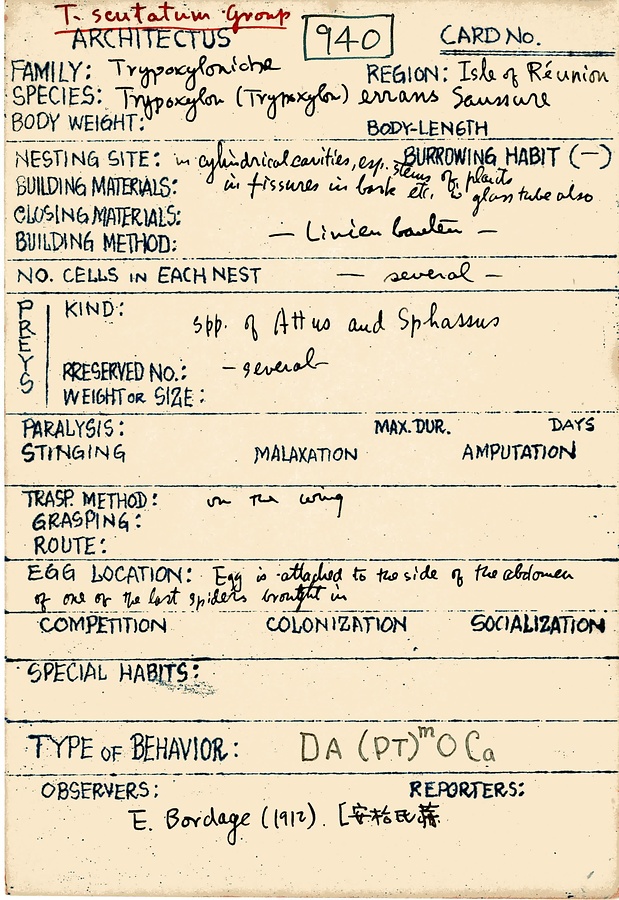 T. scutatum Group
ARCHITECTUS 940 CARD No.
FAMILY: Trypoxylonidae REGION: Isle of Réunion
SPECIES: Trypoxylon (Trypoxylon) errans Saussure
BODY WEIGHT: BODY-LENGTH
NESTING SITE: in cylindrical cavities, esp. stems of plants BURROWING HABIT (—)
BUILDING MATERIALS: in fissures in bark etc. in glass tube also
CLOSING MATERIALS:
BUILDING METHOD: —
NO. CELLS IN EACH NEST — several —
PREYS
KIND: spp. of Attus and Sphassus
PRESERVED NO.: — several
WEIGHT OR SIZE:
PARALYSIS: MAX. DUR. DAYS
STINGING MALAXATION AMPUTATION
TRASP. METHOD: on the wing
GRASPING:
ROUTE:
EGG LOCATION: Egg is attached to the side of the abdomen
of one of the last spiders brought in
COMPETITION COLONIZATION SOCIALIZATION
SPECIAL HABITS:
TYPE OF BEHAVIOR: DA (PT)ᵐ O Ca
OBSERVERS: REPORTERS:
E. Bordage (1912). [安松